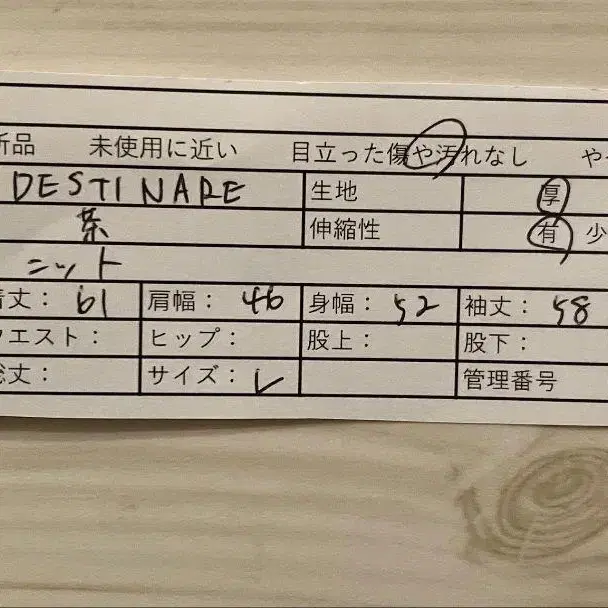 新品 未使用に近い 目立った傷や汚れなし や
DESTINARE 生地 厚
茶 伸縮性 有 少
ニット
着丈： 61 肩幅： 46 身幅： 52 袖丈： 58
ウエスト： ヒップ： 股上： 股下：
総丈： サイズ： L 管理番号